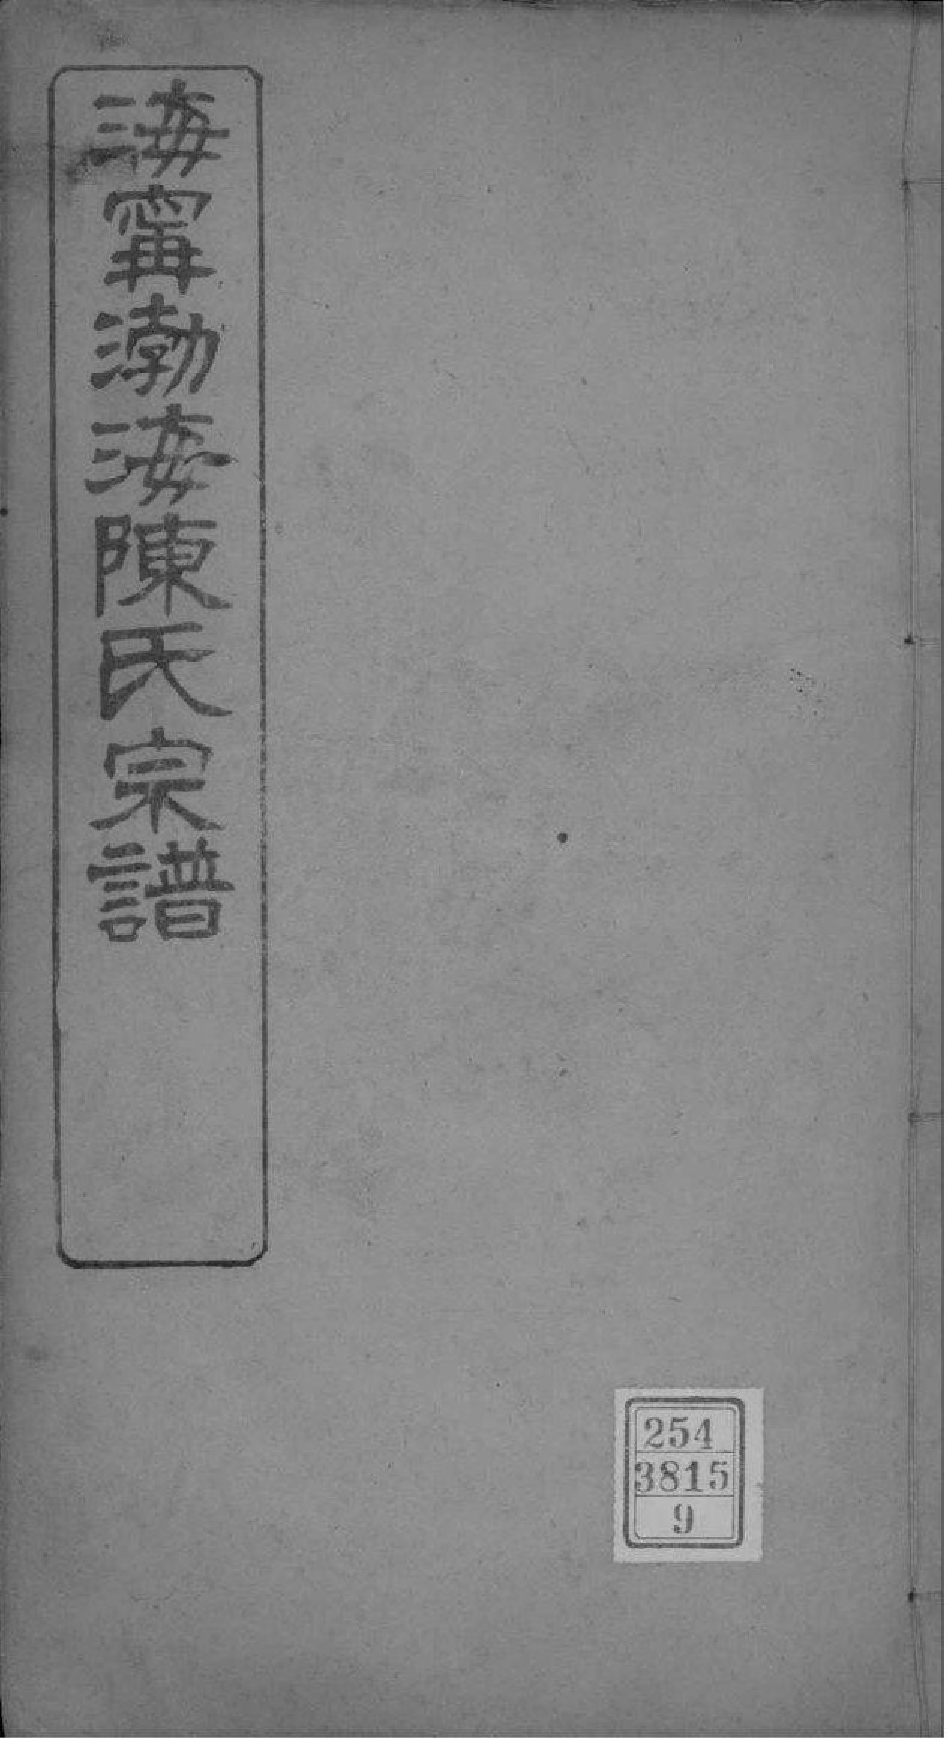 海甯渤海陳氏宗譜
254
3815
9